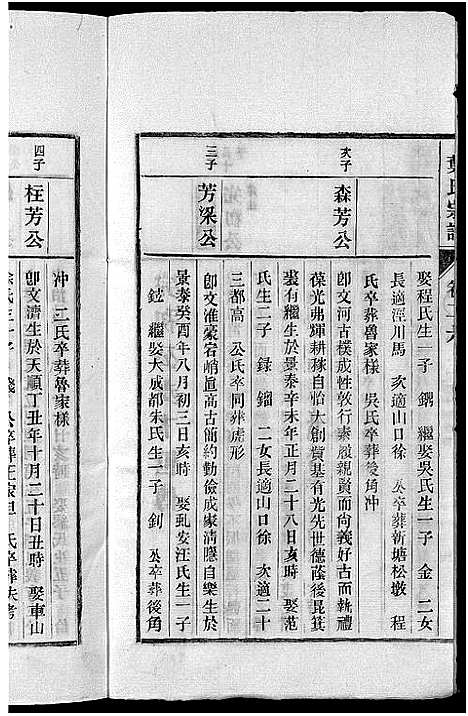 葉氏宗譜
卷二六
娶程氏生一子 鐊 繼娶吳氏生一子 金 二女
長適涇川馬 次適山口徐 公卒葬新塘松墩 程
氏卒葬魯家樣 吳氏卒葬後角冲
次子
森芳公
卽文河古樸成性敦行素履親賢而向義好古而執禮
葆光弗輝耕稼自怡大創貲基有光先世德蔭後昆箕
裘有繼生於景泰辛未年正月二十八日亥時 娶范
氏生二子 録 鎦 二女長適山口徐 次適二十
三都高 公氏卒同葬虎形
三子
芳梁公
卽文淮豪宕峭直高古簡約勤儉成家淸隱自樂生於
景泰癸酉年八月初三日亥時 娶虬安汪氏生一子
鉉 繼娶大成都朱氏生一子 釗 公卒葬後角
冲 二氏卒葬魯家樣
四子
枉芳公
卽文濟生於天順丁丑年十月二十日丑時 娶車山
徐氏生一子 公卒葬 氏卒葬失考